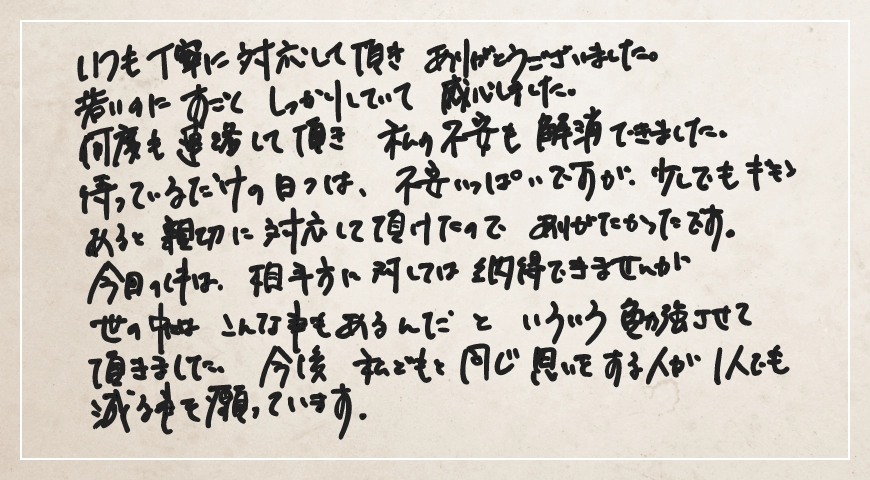 いつも丁寧に対応して頂き ありがとうございました。
若いのに すごく しっかりしていて 感心しました。
何度も連絡して頂き 私の不安も 解消できました。
待っているだけの日々は、不安いっぱいですが、少しでも
あると 親切に対応して頂けたので ありがたかったです。
今回の件は、相手方に対しては 納得できませんが
世の中は こんな事もあるんだ と いろいろ 勉強させて
頂きました。 今後 私どもと同じ 思いをする人が 1人でも
減る事を願っています。